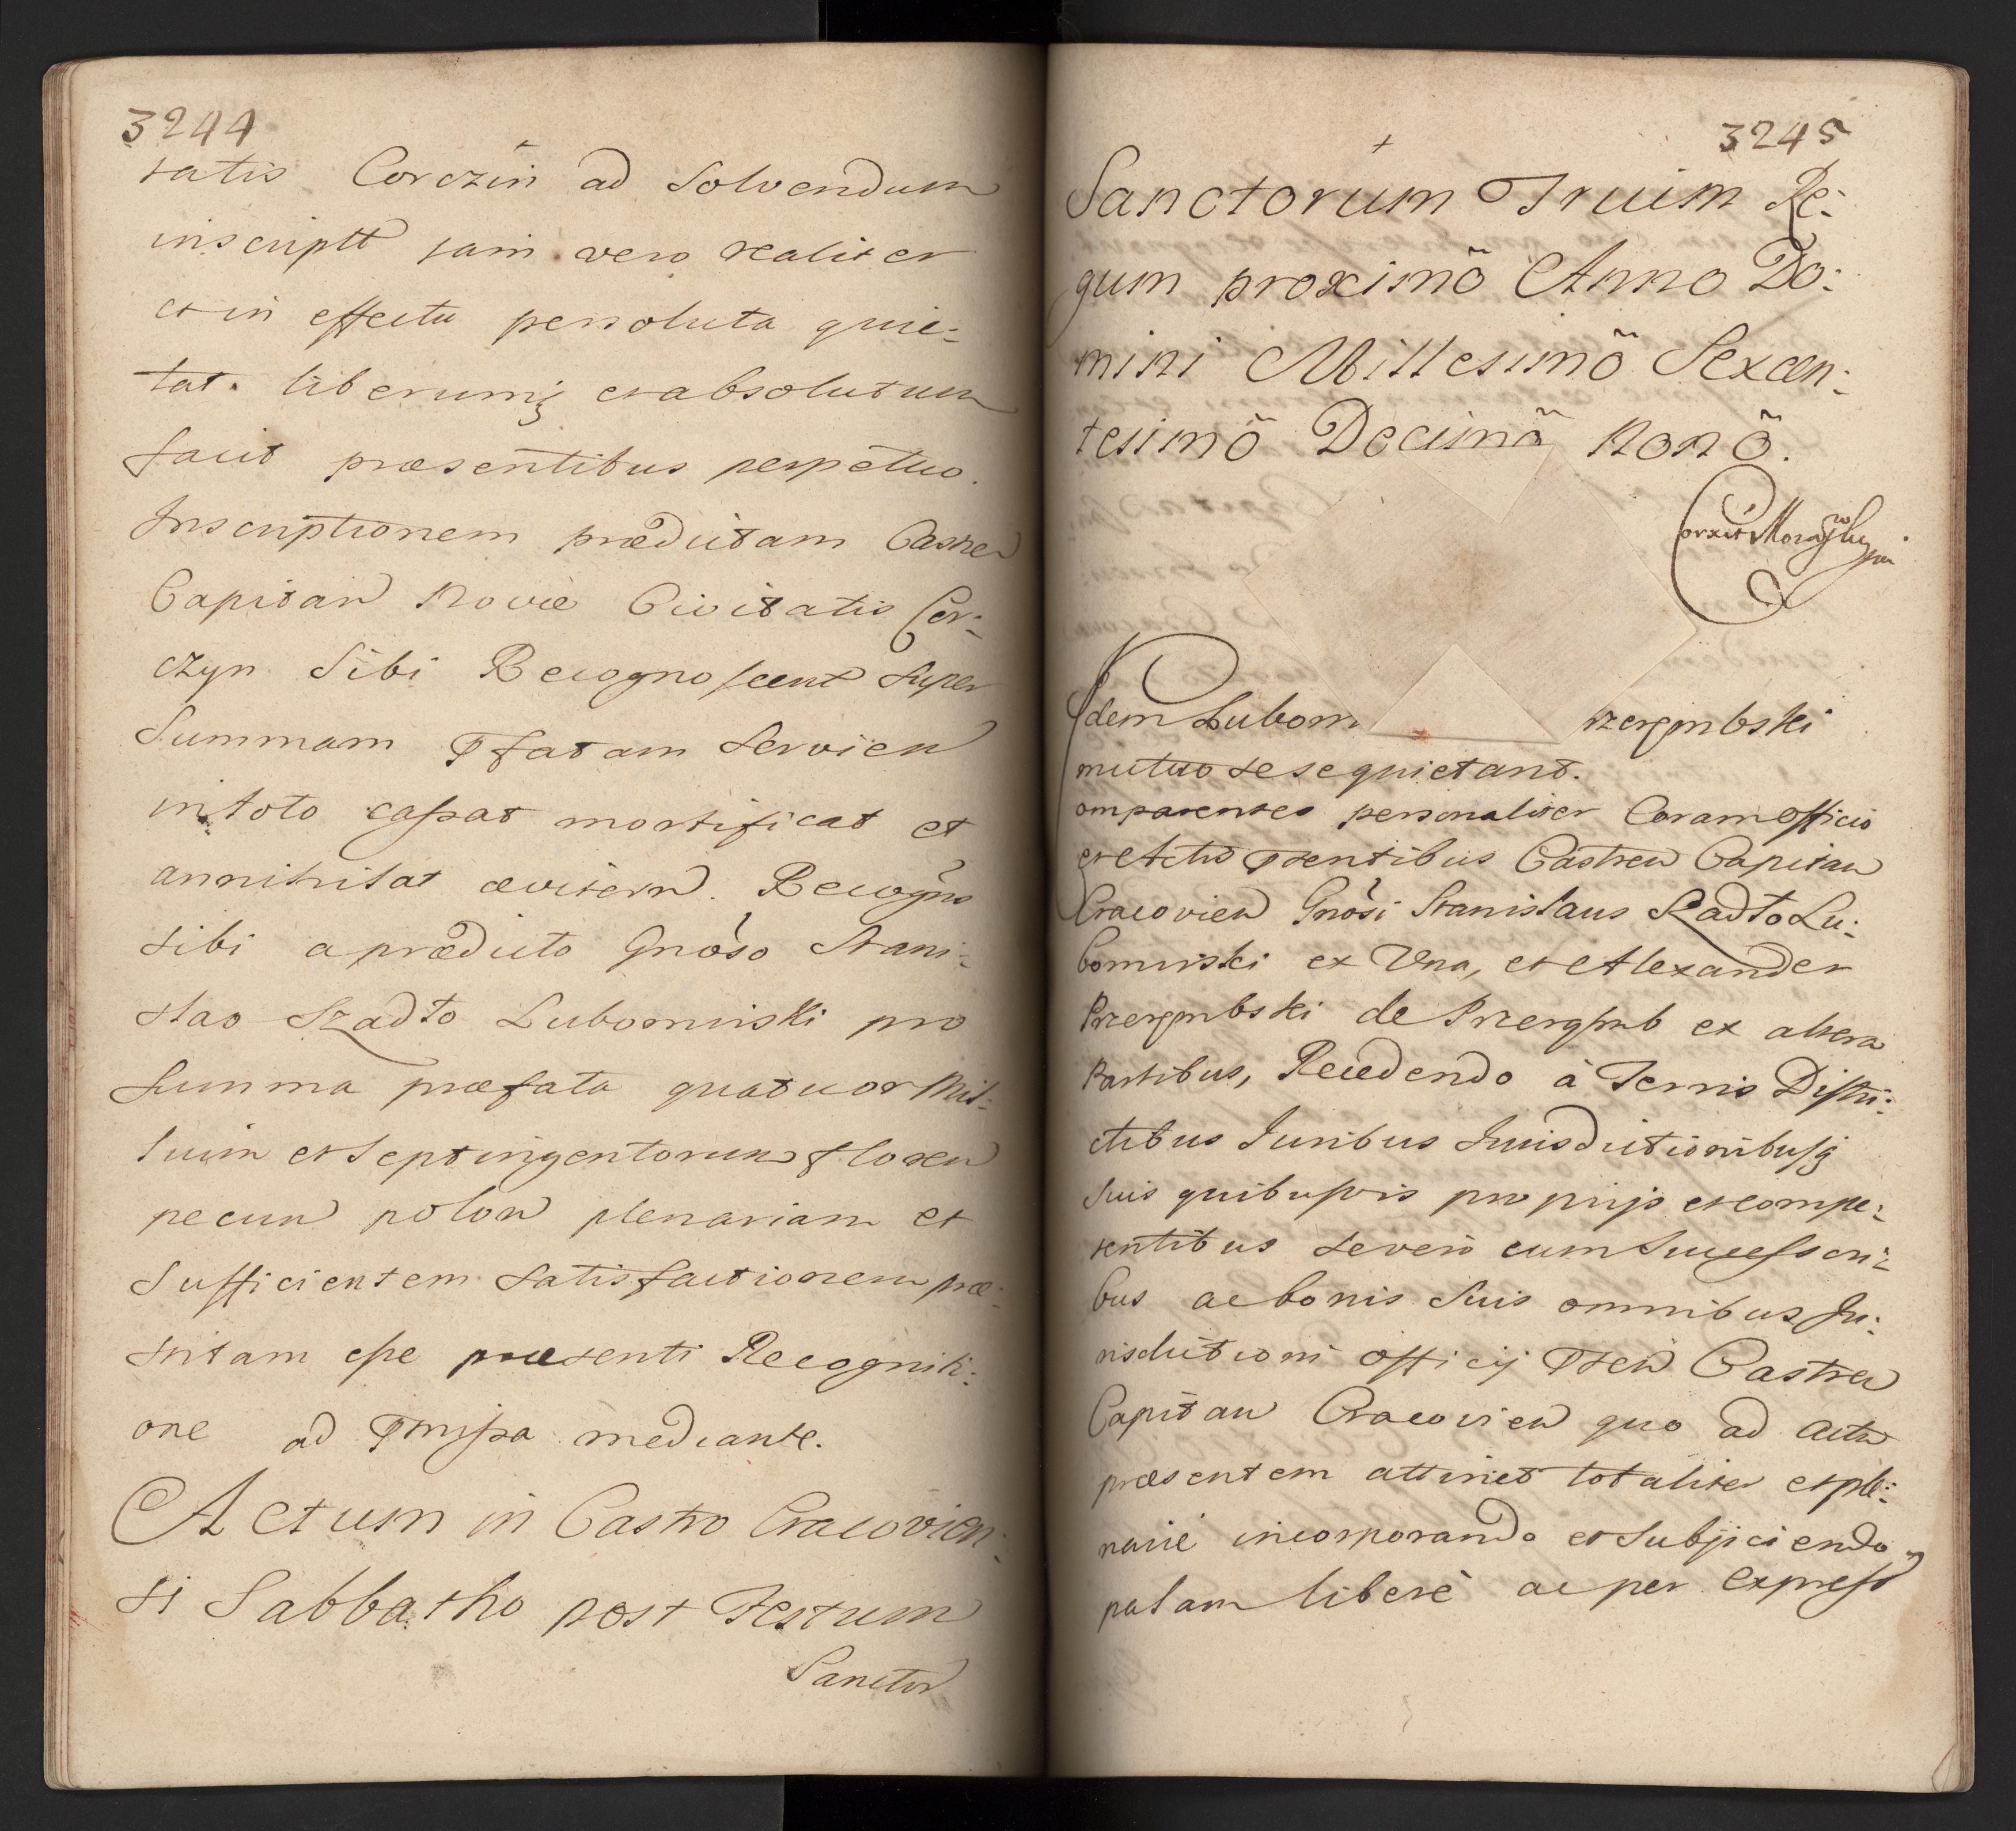 3244
tatis Corczin ad Solvendum
inscriptt jam vero realiter
et in effectu persoluta quie:
tat. liberumq et absolutum
facit præsentibus perpetuo.
Inscriptionem prædictam Castren
Capitan Novæ Civitatis Cor:
czyn Sibi Recognoscent super
Summam Pfatam servien
in toto cassat mortificat et
annihilat ævitern. Recogno
sibi a prædicto Gnoso Stani:
slao Szadto Lubomirski pro
summa præfata quatuor Mil:
luim et Septingentorum floren
pecun polon plenariam et
Sufficientem satisfactionem præ:
stitam esse præsenti Recogniti:
one ad Pmissa mediante.
Actum in Castro Cracovien:
si Sabbatho post Festum
Sanctor
3245
Sanctorum Truim Re:
gum proximõ Anno Do:
mini Millesimõ Sexcen:
tesimõ Decimõ Nonõ.
Idem Lubom rzerembski
mutuo se se quietant.
omparentes personaliter Coram Officio
et Actis Psentibus Castren Capitan
Cracovien Gnosi Stanislaus Szadto Lu:
bomirski ex Una, et Alexander
Przerembski de Przeremb ex altera
Partibus, Recedendo à Terris Distri:
ctibus Juribus Jurisdictionibusq
Suis quibusvis proprijs et compe:
tentibus se vero cum Successori:
bus ac bonis Suis omnibus Ju:
risdictioni Officij Psen Castren
Capitan Cracovien quo ad actu
præsentem attinet totaliter et ple:
nariè incorporando et Subjiciendo
palam liberè ac per express